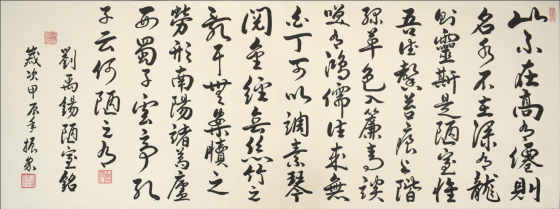 山不在高有僊則
名水不在深有龍
則靈斯是陋室惟
吾德馨苔痕上階
綠草色入簾青談
笑有鴻儒往來無
白丁可以調素琴
閱金經無絲竹之
亂耳無案牘之
勞形南陽諸葛廬
西蜀子雲亭孔
子云何陋之有
劉禹錫陋室銘
歲次甲辰年振